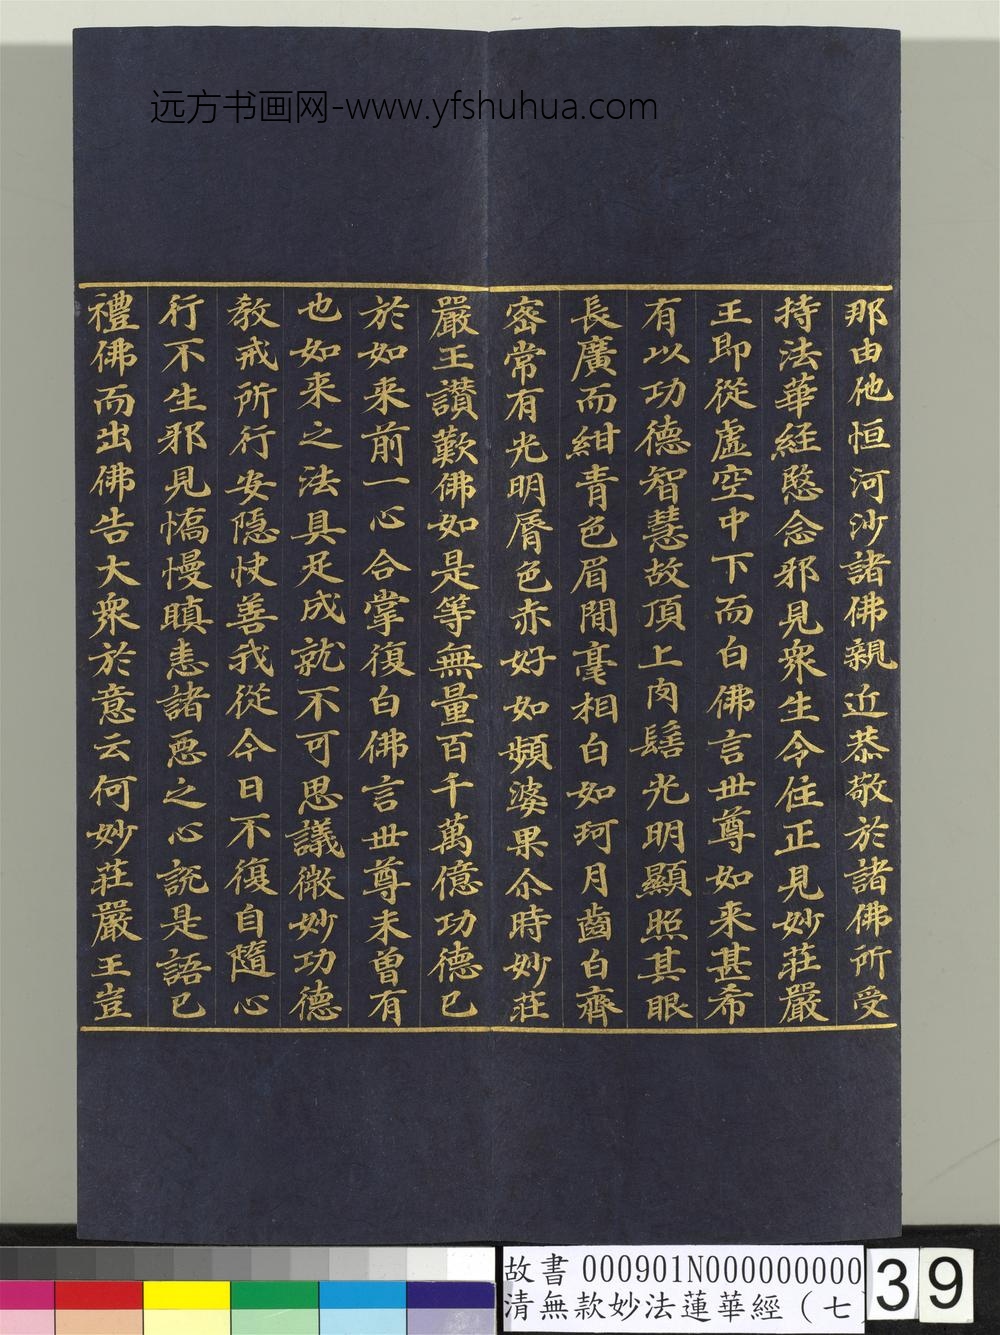 远方书画网-www.yfshuhua.com
那由他恒河沙諸佛親近恭敬於諸佛所受
持法華経愍念邪見衆生令住正見妙莊嚴
王即從虛空中下而白佛言世尊如来甚希
有以功德智慧故頂上肉髻光明顯照其眼
長廣而紺青色眉間毫相白如珂月齒白齊
密常有光明脣色赤好如頻婆果尒時妙莊
嚴王讃歎佛如是等無量百千萬億功德已
於如来前一心合掌復白佛言世尊未曾有
也如来之法具足成就不可思議微妙功德
教戒所行安隱快善我從今日不復自隨心
行不生邪見憍慢瞋恚諸惡之心説是語已
禮佛而出佛告大衆於意云何妙莊嚴王豈
故書 000901N000000000
清無款妙法蓮華經（七
39